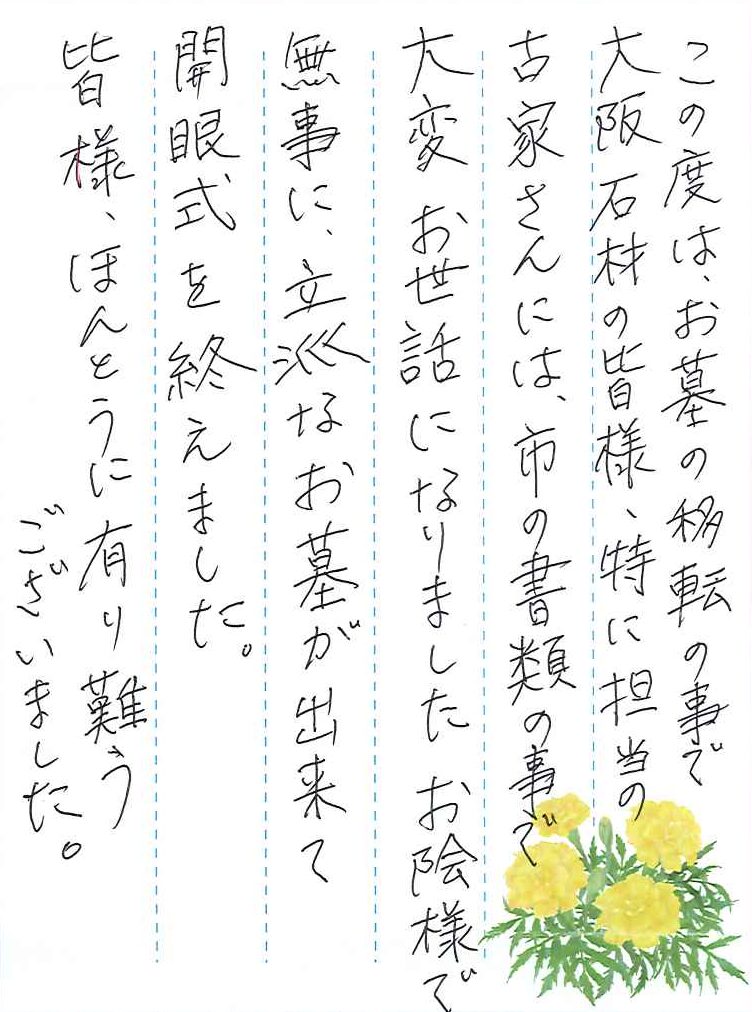 この度は、お墓の移転の事で
大阪石材の皆様、特に担当の
古家さんには、市の書類の事で
大変お世話になりました お陰様で
無事に、立巡なお墓が出来て
開眼式を終えました。
皆様、ほんとうに有り難う
ございました。